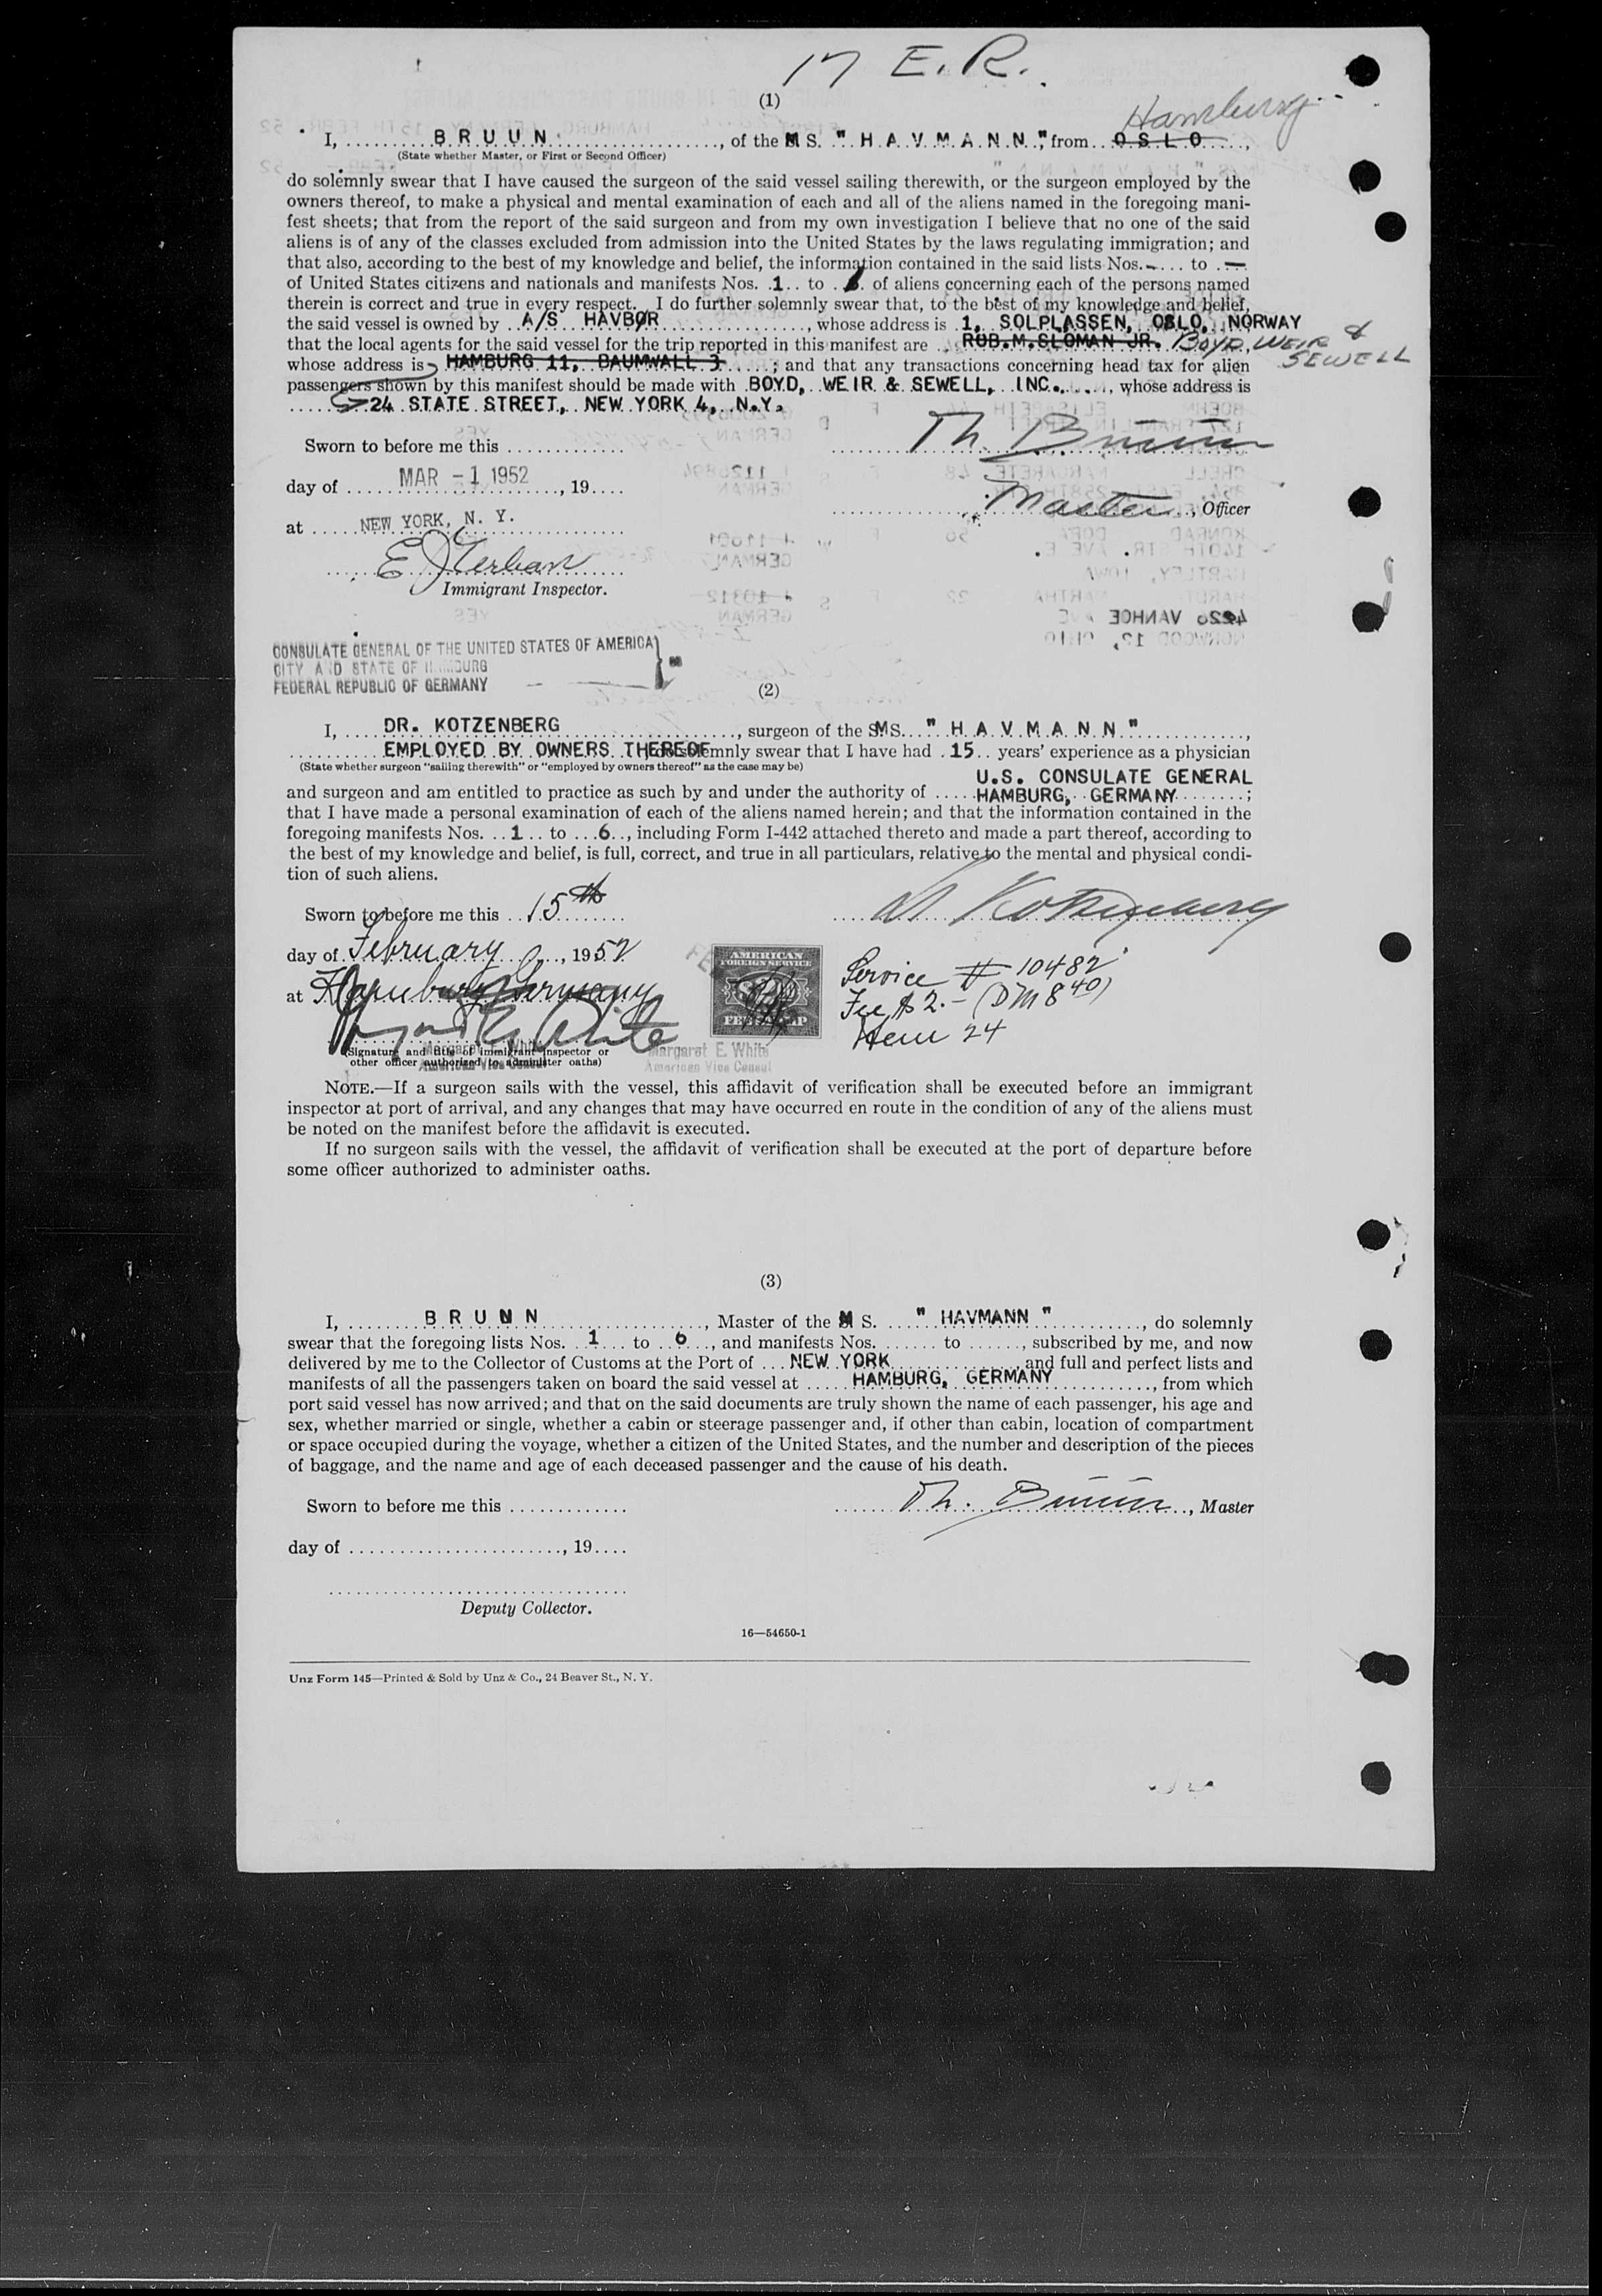 17 E. R.
(1)
Hamburg
I, B R U U N, of the M S. " H A V M A N N ", from O S L O,
(State whether Master, or First or Second Officer)
do solemnly swear that I have caused the surgeon of the said vessel sailing therewith, or the surgeon employed by the
owners thereof, to make a physical and mental examination of each and all of the aliens named in the foregoing mani-
fest sheets; that from the report of the said surgeon and from my own investigation I believe that no one of the said
aliens is of any of the classes excluded from admission into the United States by the laws regulating immigration; and
that also, according to the best of my knowledge and belief, the information contained in the said lists Nos. – to –
of United States citizens and nationals and manifests Nos. 1 to 6 of aliens concerning each of the persons named
therein is correct and true in every respect. I do further solemnly swear that, to the best of my knowledge and belief,
the said vessel is owned by A/S HAVBØR, whose address is 1, SOLPLASSEN, OSLO, NORWAY
that the local agents for the said vessel for the trip reported in this manifest are ROB.M.SLOMAN JR. BOYD, WEIR &
SEWELL
whose address is HAMBURG 11, BAUMWALL 3; and that any transactions concerning head tax for alien
passengers shown by this manifest should be made with BOYD, WEIR & SEWELL, INC., whose address is
24 STATE STREET, NEW YORK 4, N.Y.
Sworn to before me this
Th. Bruun
day of MAR -1 1952, 19
Master, Officer
at NEW YORK, N. Y.
Immigrant Inspector.
CONSULATE GENERAL OF THE UNITED STATES OF AMERICA
CITY AND STATE OF HAMBURG
FEDERAL REPUBLIC OF GERMANY
(2)
I, DR. KOTZENBERG, surgeon of the MS. " H A V M A N N ",
EMPLOYED BY OWNERS THEREOF solemnly swear that I have had 15 years' experience as a physician
(State whether surgeon "sailing therewith" or "employed by owners thereof" as the case may be)
U.S. CONSULATE GENERAL
and surgeon and am entitled to practice as such by and under the authority of HAMBURG, GERMANY;
that I have made a personal examination of each of the aliens named herein; and that the information contained in the
foregoing manifests Nos. 1 to 6, including Form I-442 attached thereto and made a part thereof, according to
the best of my knowledge and belief, is full, correct, and true in all particulars, relative to the mental and physical condi-
tion of such aliens.
Sworn to before me this 15th
Kotzenberg
day of February, 1952
at Hamburg, Germany
AMERICAN
FOREIGN SERVICE
Service # 10482
Fee $ 2.– (DM 8 40)
Item 24
Margaret E. White
(Signature and title of immigrant inspector or
other officer authorized to administer oaths)
Margaret E. White
American Vice Consul
Margaret E. White
American Vice Consul
NOTE.—If a surgeon sails with the vessel, this affidavit of verification shall be executed before an immigrant
inspector at port of arrival, and any changes that may have occurred en route in the condition of any of the aliens must
be noted on the manifest before the affidavit is executed.
If no surgeon sails with the vessel, the affidavit of verification shall be executed at the port of departure before
some officer authorized to administer oaths.
(3)
I, B R U U N, Master of the M S. " HAVMANN ", do solemnly
swear that the foregoing lists Nos. 1 to 6, and manifests Nos. to, subscribed by me, and now
delivered by me to the Collector of Customs at the Port of NEW YORK, and full and perfect lists and
manifests of all the passengers taken on board the said vessel at HAMBURG, GERMANY, from which
port said vessel has now arrived; and that on the said documents are truly shown the name of each passenger, his age and
sex, whether married or single, whether a cabin or steerage passenger and, if other than cabin, location of compartment
or space occupied during the voyage, whether a citizen of the United States, and the number and description of the pieces
of baggage, and the name and age of each deceased passenger and the cause of his death.
Sworn to before me this
Th. Bruun, Master
day of, 19
Deputy Collector.
16—54650-1
Unz Form 145—Printed & Sold by Unz & Co., 24 Beaver St., N. Y.